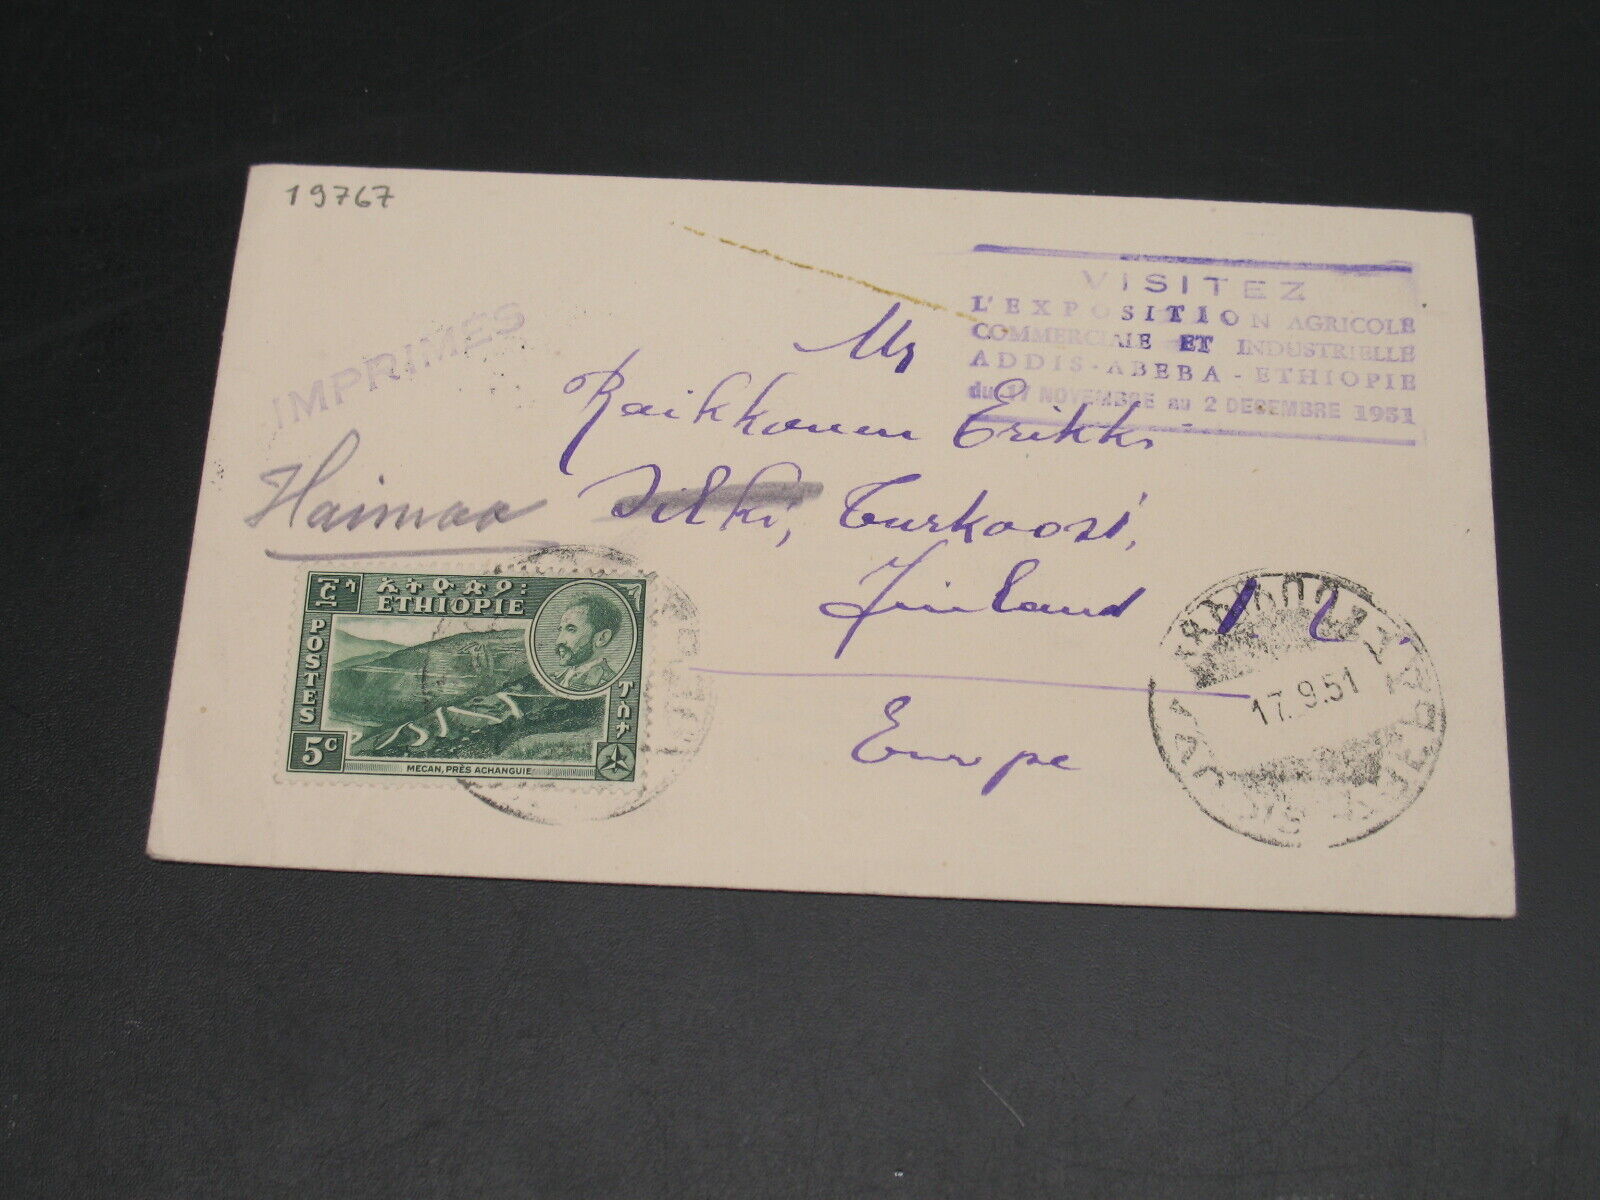 19767
VISITEZ
L'EXPOSITION AGRICOLE
COMMERCIALE ET INDUSTRIELLE
ADDIS-ABEBA-ETHIOPIE
du 17 NOVEMBRE au 2 DECEMBRE 1951
IMPRIMÉS
Mr
Raikkonen Erikki
Haimoo
Turkoosi,
Finland
Europe
ኢትዮጵያ፡
ETHIOPIE
POSTES
ፖስታ
5c
MECAN, PRÈS ACHANGUIE
17.9.51